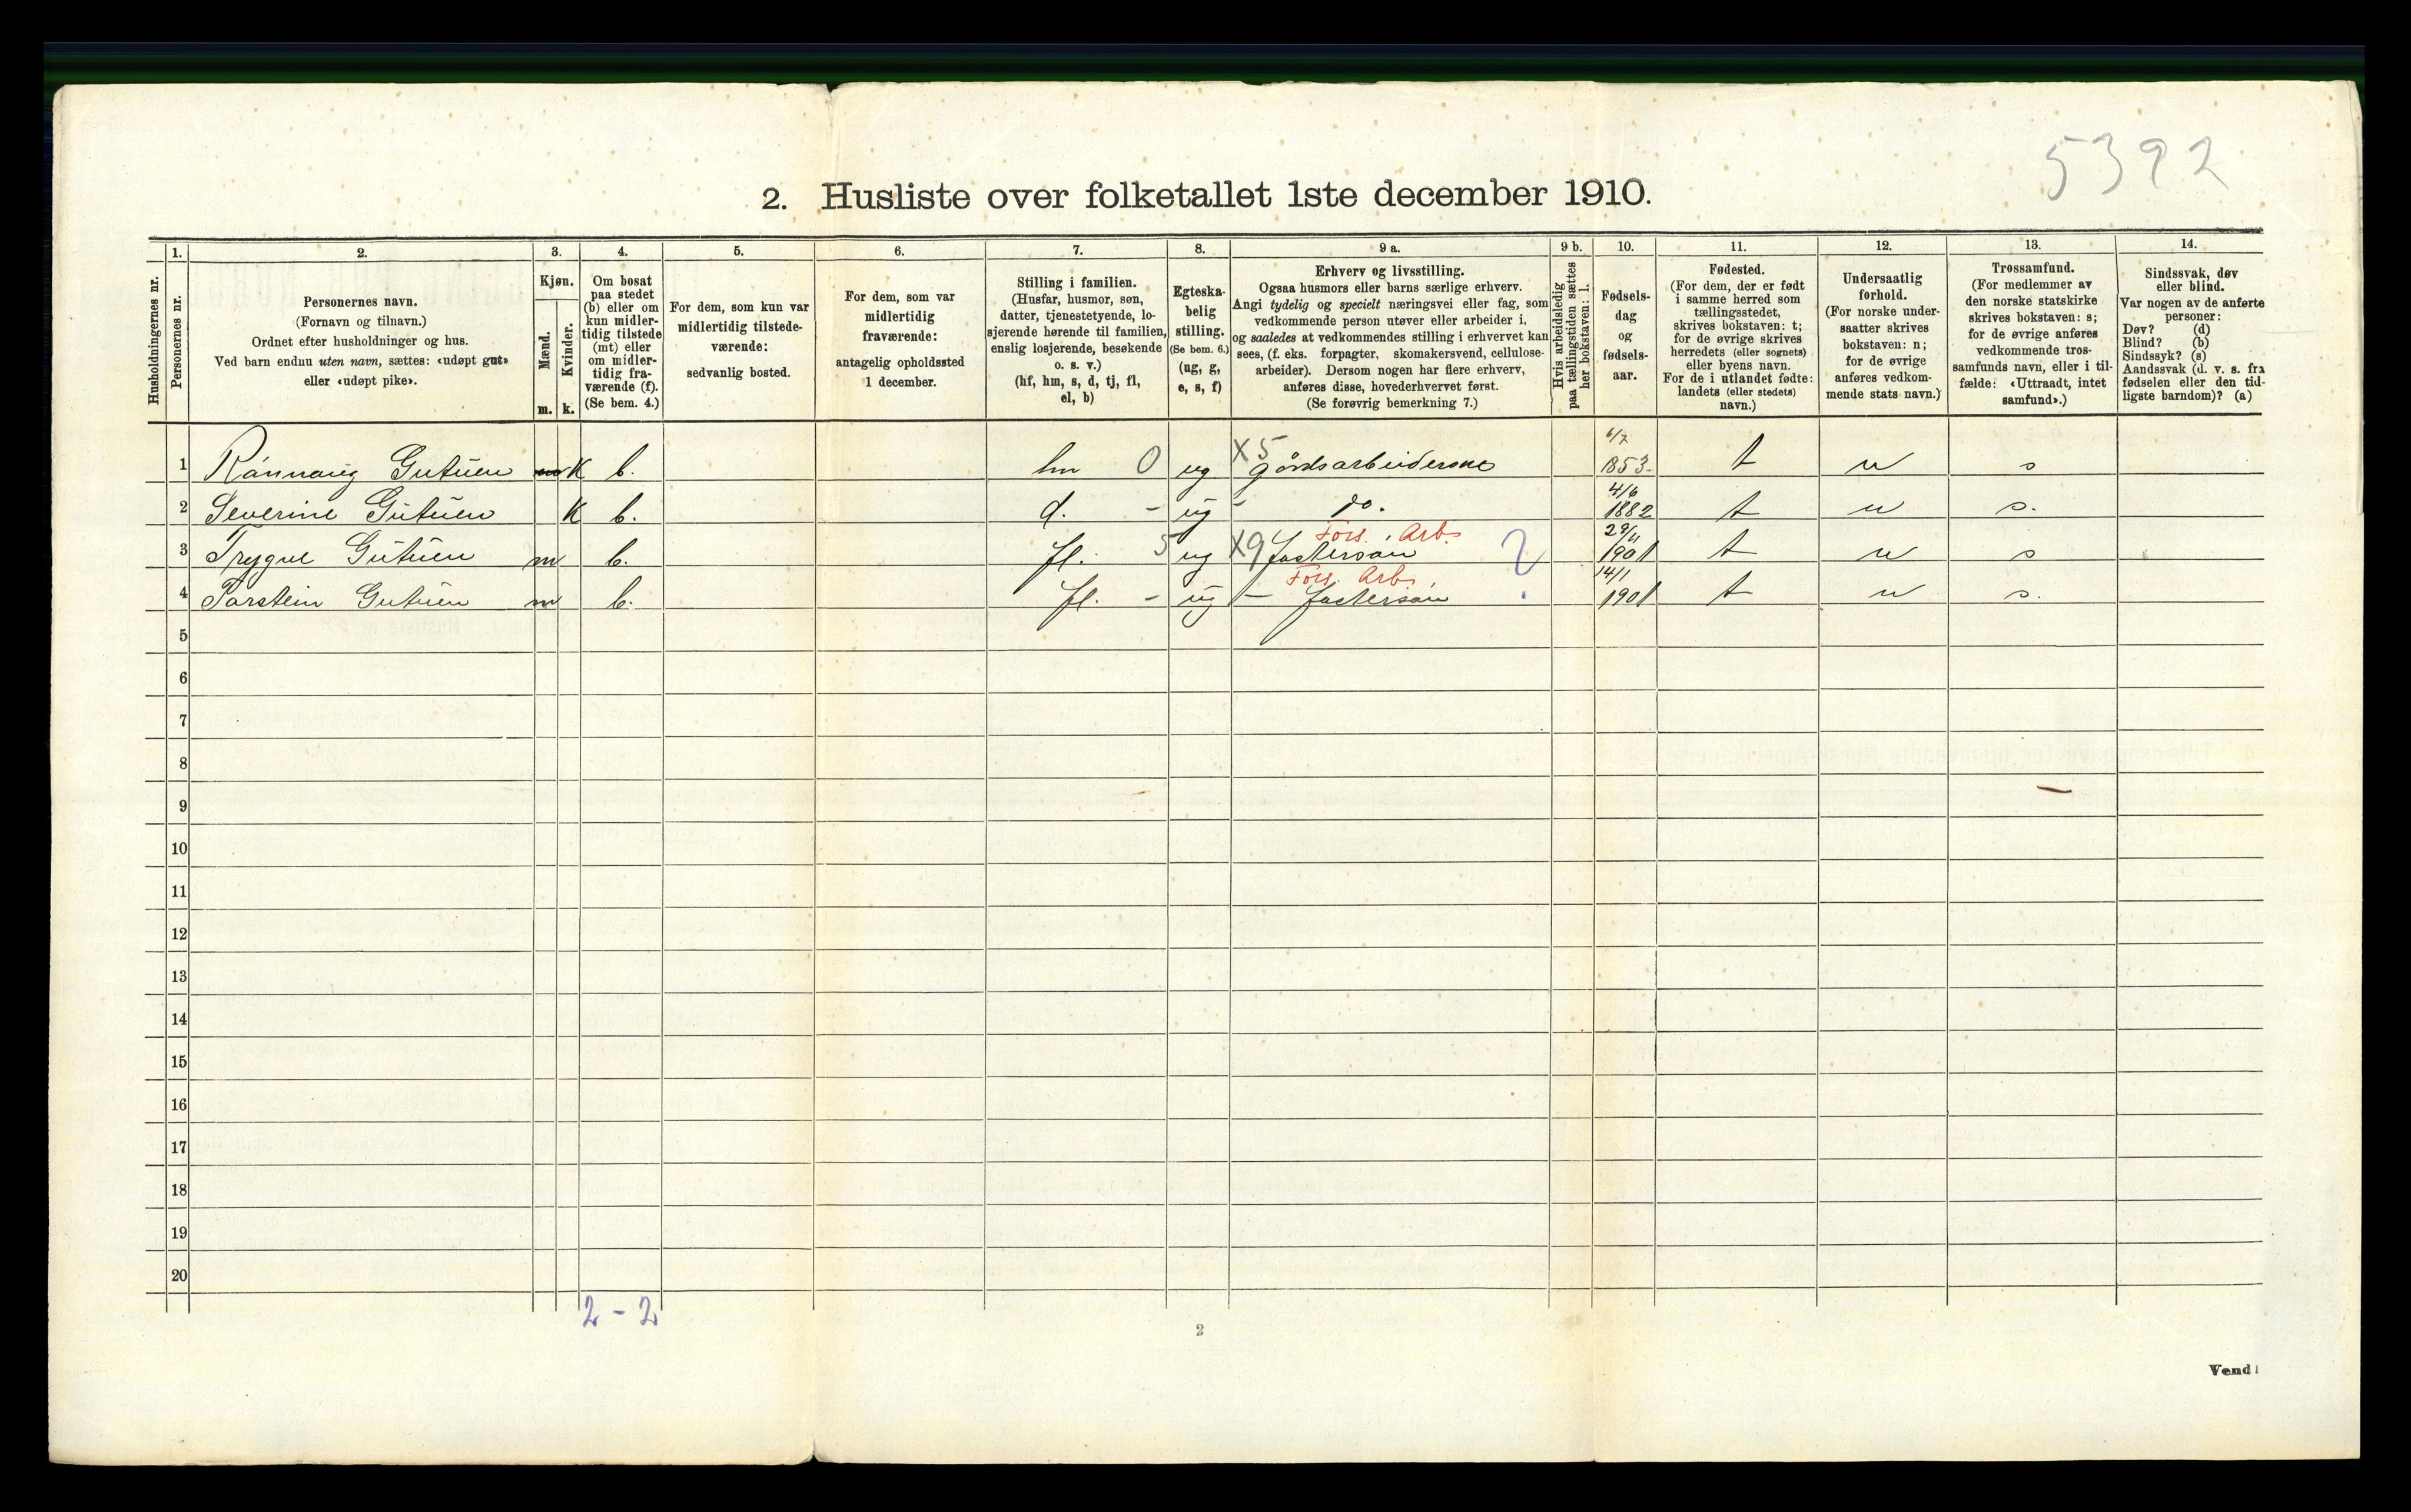 5392
2. Husliste over folketallet 1ste december 1910.
Husholdningernes nr.
1.
Personernes nr.
2.
Personernes navn.
(Fornavn og tilnavn.)
Ordnet efter husholdninger og hus.
Ved barn endnu uten navn, sættes: «udøpt gut»
eller «udøpt pike».
3.
Kjøn.
Mænd.
Kvinder.
m. k.
4.
Om bosat
paa stedet
(b) eller om
kun midler-
tidig tilstede
(mt) eller
om midler-
tidig fra-
værende (f).
(Se bem. 4.)
5.
For dem, som kun var
midlertidig tilstede-
værende:
sedvanlig bosted.
6.
For dem, som var
midlertidig
fraværende:
antagelig opholdssted
1 december.
7.
Stilling i familien.
(Husfar, husmor, søn,
datter, tjenestetyende, lo-
sjerende hørende til familien,
enslig losjerende, besøkende
o. s. v.)
(hf, hm, s, d, tj, fl,
el, b)
8.
Egteska-
belig
stilling.
(Se bem. 6.)
(ug, g,
e, s, f)
9 a.
Erhverv og livsstilling.
Ogsaa husmors eller barns særlige erhverv.
Angi tydelig og specielt næringsvei eller fag, som
vedkommende person utøver eller arbeider i,
og saaledes at vedkommendes stilling i erhvervet kan
sees, (f. eks. forpagter, skomakersvend, cellulose-
arbeider). Dersom nogen har flere erhverv,
anføres disse, hovederhvervet først.
(Se forøvrig bemerkning 7.)
9 b.
Hvis arbeidsledig
paa tællingstiden sættes
her bokstaven: l.
10.
Fødsels-
dag
og
fødsels-
aar.
11.
Fødested.
(For dem, der er født
i samme herred som
tællingsstedet,
skrives bokstaven: t;
for de øvrige skrives
herredets (eller sognets)
eller byens navn.
For de i utlandet fødte:
landets (eller stedets)
navn.)
12.
Undersaatlig
forhold.
(For norske under-
saatter skrives
bokstaven: n;
for de øvrige
anføres vedkom-
mende stats navn.)
13.
Trossamfund.
(For medlemmer av
den norske statskirke
skrives bokstaven: s;
for de øvrige anføres
vedkommende tros-
samfunds navn, eller i til-
fælde: «Uttraadt, intet
samfund».)
14.
Sindssvak, døv
eller blind.
Var nogen av de anførte
personer:
Døv? (d)
Blind? (b)
Sindssyk? (s)
Aandssvak (d. v. s. fra
fødselen eller den tid-
ligste barndom)? (a)
1 Rånnaug Gutuen m K b. hm 0 ug X5 gårdsarbeiderske 6/7 1853 t n s
2 Severine Gutuen K b. d. - ug - do. 4/6 1882 t n s.
Fors. Arb.
3 Trygve Gutuen m b. fl. 5 ug X9 fostersøn 29/11 1901 t n s
Fors. Arb.
4 Torstein Gutuen m b. fl. - ug - fostersøn 14/1 1901 t n s.
5
6
7
8
9
10
11
12
13
14
15
16
17
18
19
20
2 - 2
2
Vend!